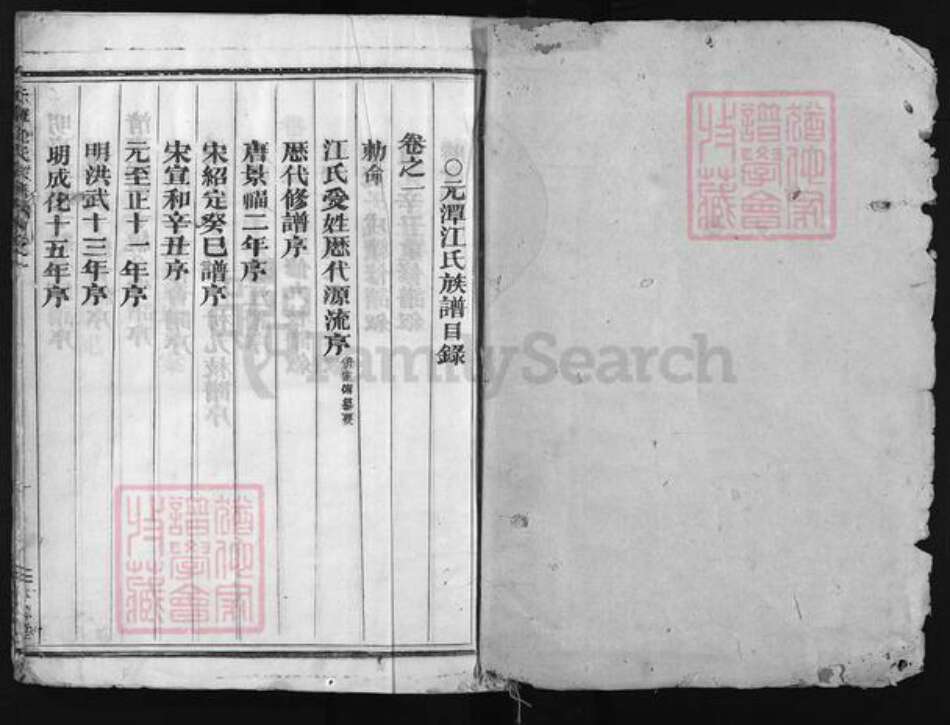 ○元潭江氏族譜目錄
卷之一
勅命
江氏愛姓歴代源流序
歴代修譜序
唐景福二年序
宋紹定癸巳譜序
宋宣和辛丑序
元至正十一年序
明洪武十三年序
明成化十五年序
FamilySearch
猶他家
譜學會
特藏
猶他家
譜學會
特藏